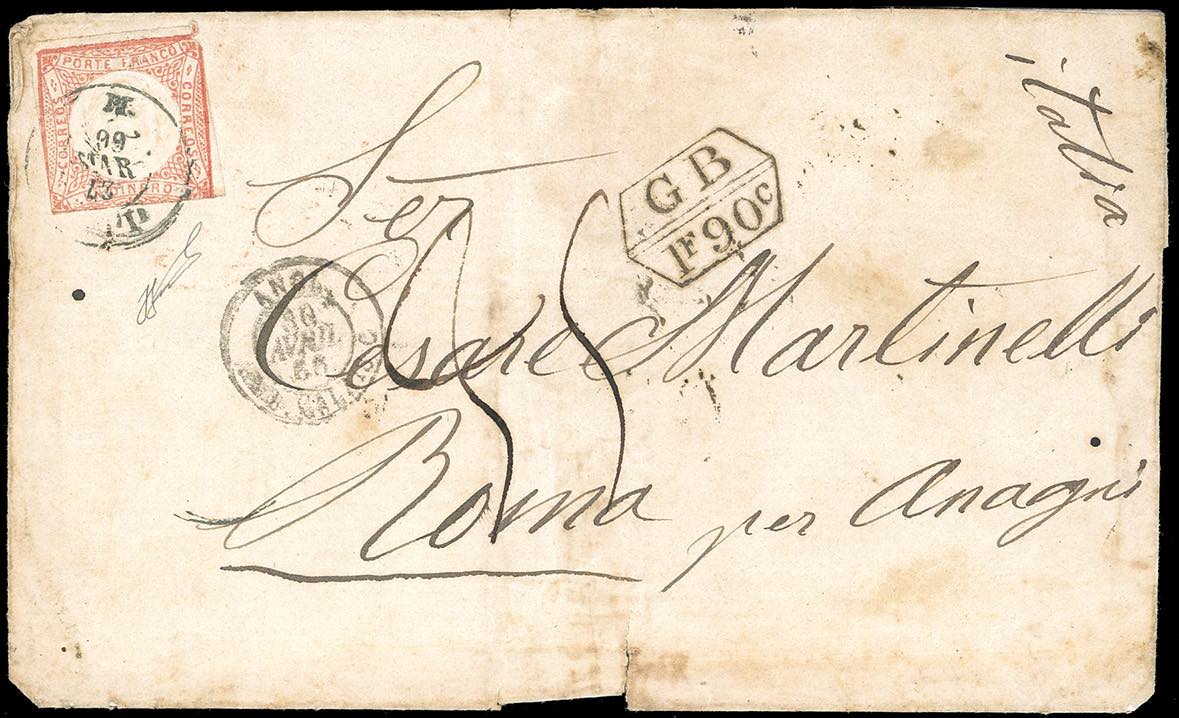 PORTE FRANCO
CORREOS
CORREOS
DINERO
MAR
23
italia
GB
1F90c
Ser
Cesare Martinelli
Roma per Anagni
ANGL.
30
AVRIL
CALAIS
55